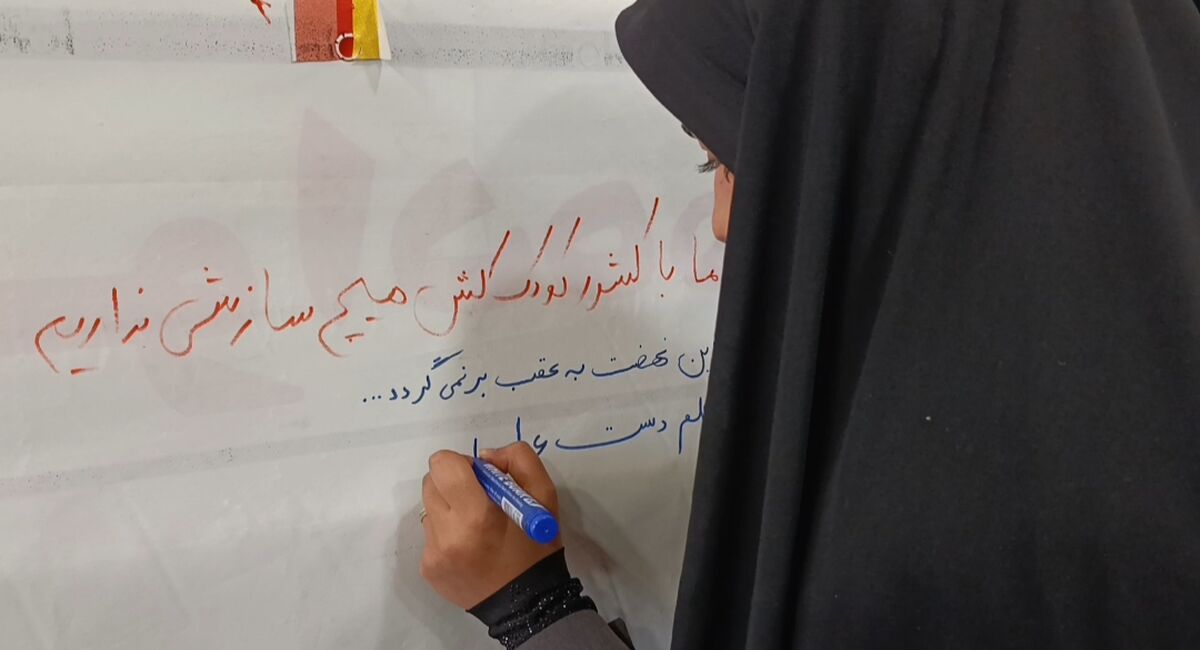 ما با کشور کودک کش هیچ سازشی نداریم
ین نهضت به عقب برنمی گردد...
لم دست